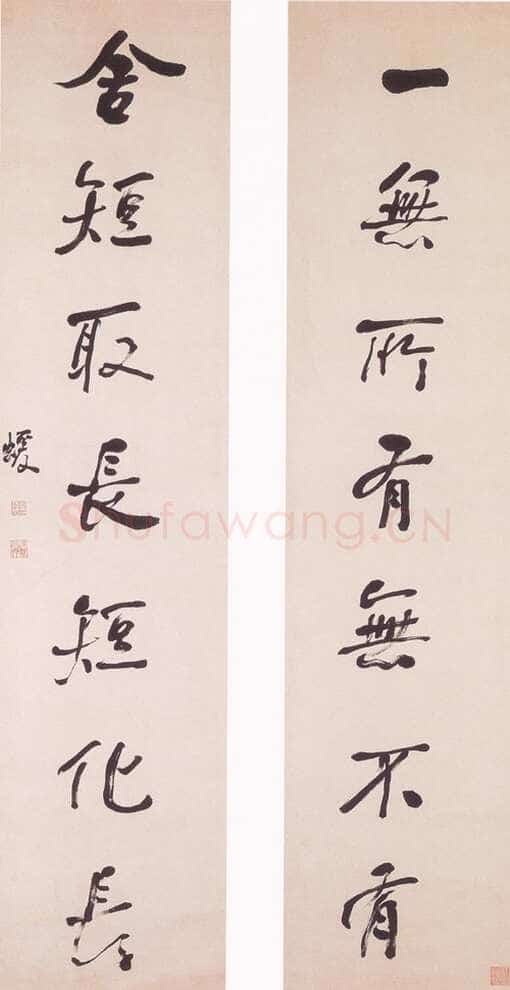 一無所有無不有
舍短取長短化長
蝯叟
Shufawang.CN